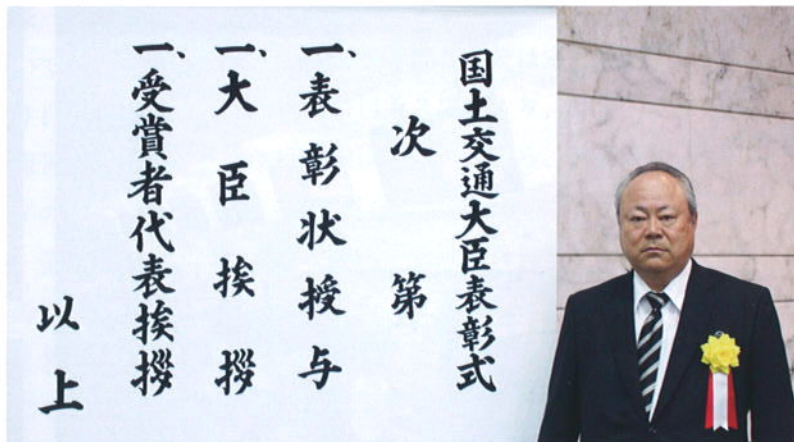 国土交通大臣表彰式
次第
一、表彰状授与
一、大臣挨拶
一、受賞者代表挨拶
以上